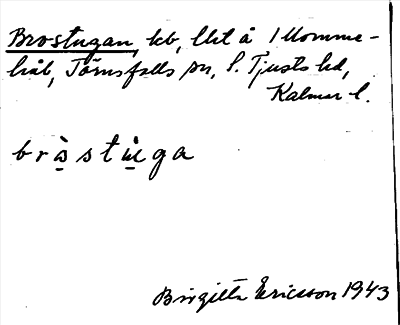 Brostugan, kb, lht å 1 Momme-
hål, Törnsfalls sn, S. Tjusts hd,
Kalmar l.
bròstùga
Birgitta Ericsson 1943